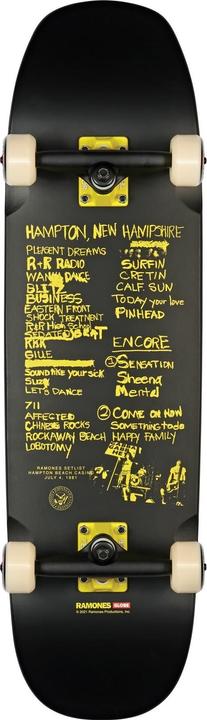 HAMPTON, NEW HAMPSHIRE
PLEASENT DREAMS
R+R RADIO
WANNA DANCE
BLITZ
BUSINESS
EASTERN FRONT
SHOCK TREATMENT
R+R High School
SEDATED BRAT
RRR
GILLE
Sound like your sick
Suzy
LET'S DANCE
711
AFFECTED
CHINESE ROCKS
ROCKAWAY BEACH
LOBOTOMY
SURFIN
CRETIN
CALF. SUN
TODAY your love
PINHEAD
ENCORE
① SENSATION
Sheena
Mental
② COME ON NOW
Something to do
HAPPY FAMILY
RAMONES SETLIST
HAMPTON BEACH CASINO
JULY 4, 1981
RAMONES GLOBE
© 2021 Ramones Productions, Inc